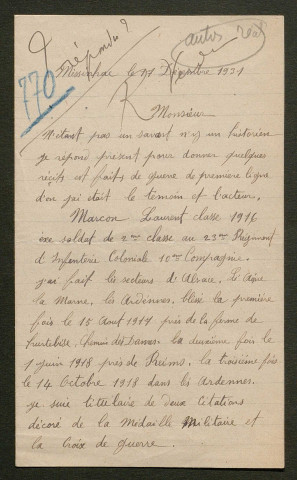 répondu ?
autos
770
le 11 Décembre 1931
R
Monsieur
N'étant pas un savant n'y un historien
je repond present pour donner quelques
récits et faits de guerre de premiere ligne
d'on j'ai était le temoin et l'acteur.
Marcon Laurent classe 1916
exe soldat de 2me classe au 23me Régiment
d'Infanterie Coloniale 10me Compagnie.
j'ai fait les secteurs d'Alsace. L'Aisne
la Marne, les Ardennes, blessé la première
fois le 15 Aout 1917 près de la ferme de
hurtebise. Chemin des Dames. la deuxième fois le
1 juin 1918 près de Reims. la troisième fois
le 14 Octobre 1918 dans les Ardennes.
je suis tittelaire de deux citations
décoré de la Médaille Militaire et
la Croix de guerre.